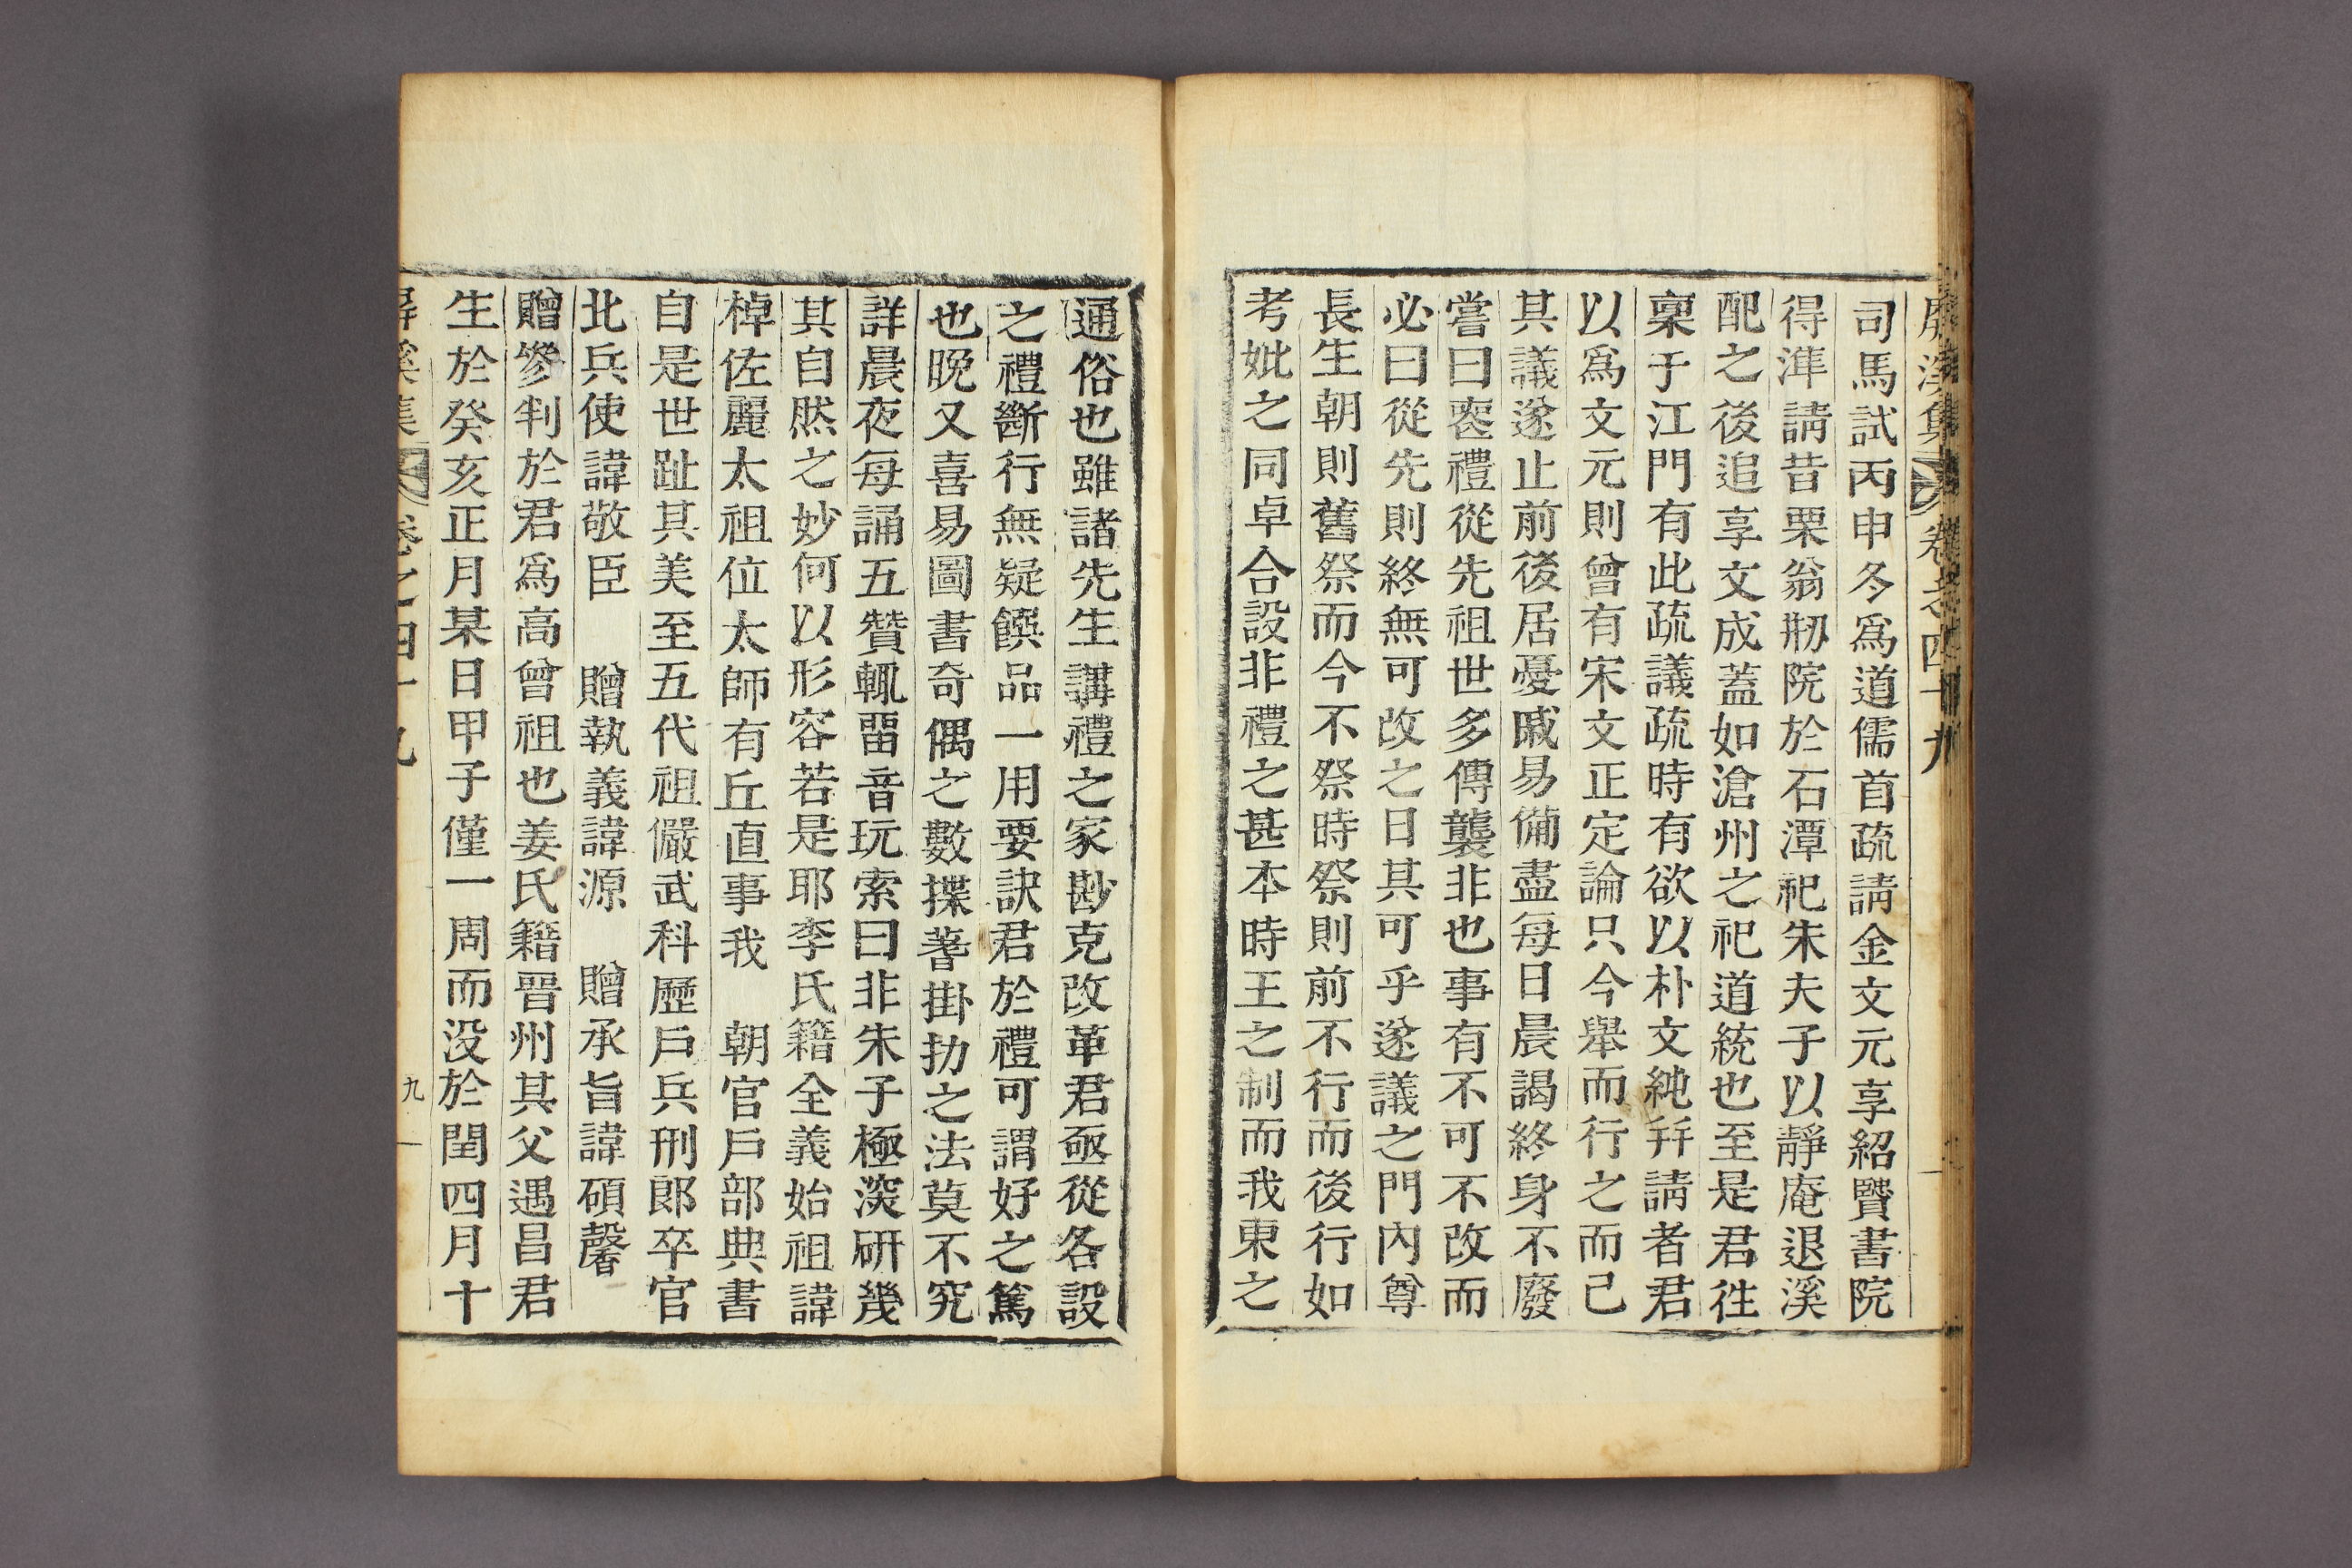 屏溪集 卷之四十九
司馬試丙申冬爲道儒首疏請金文元享紹賢書院
得準請昔栗翁刱院於石潭祀朱夫子以靜庵退溪
配之後追享文成蓋如滄州之祀道統也至是君徃
稟于江門有此疏議疏時有欲以朴文純幷請者君
以爲文元則曾有宋文正定論只今舉而行之而己
其議遂止前後居憂戚易備盡每日晨謁終身不廢
嘗曰喪禮從先祖世多傳襲非也事有不可不改而
必曰從先則終無可改之日其可乎遂議之門內尊
長生朝則舊祭而今不祭時祭則前不行而後行如
考妣之同卓合設非禮之甚本時王之制而我東之
通俗也雖諸先生講禮之家尠克改革君亟從各設
之禮斷行無疑饌品一用要訣君於禮可謂好之篤
也晩又喜易圖書奇偶之數揲蓍掛扐之法莫不究
詳晨夜每誦五贊輒畱音玩索曰非朱子極深研幾
其自然之妙何以形容若是耶李氏籍全義始祖諱
棹佐麗太祖位太師有丘直事我 朝官戶部典書
自是世趾其美至五代祖儼武科歷戶兵刑郎卒官
北兵使諱敬臣 贈執義諱源 贈承旨諱碩馨
贈參判於君爲高曾祖也姜氏籍晋州其父遇昌君
生於癸亥正月某日甲子僅一周而没於閏四月十
屏溪集 卷之四十九 九